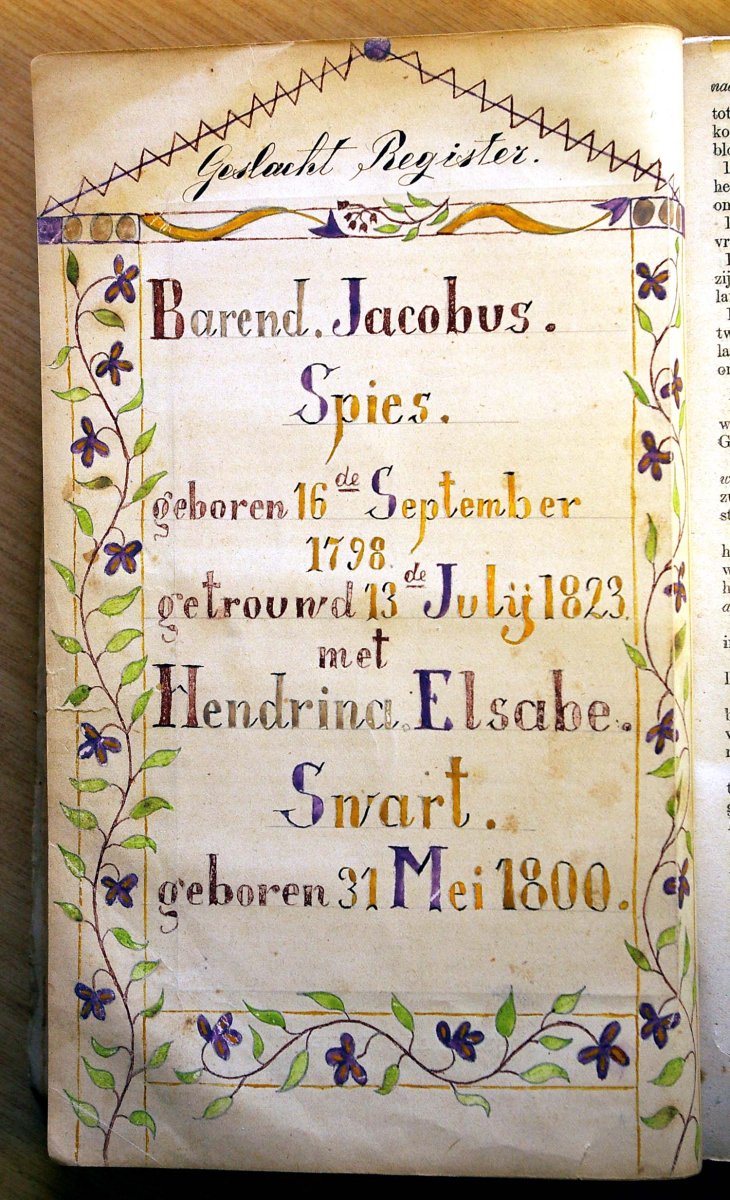 Geslacht Register.
Barend. Jacobus.
Spies.
geboren 16de September
1798.
getrouwd 13de Julij 1823.
met
Hendrina. Elsabe.
Swart.
geboren 31 Mei 1800.